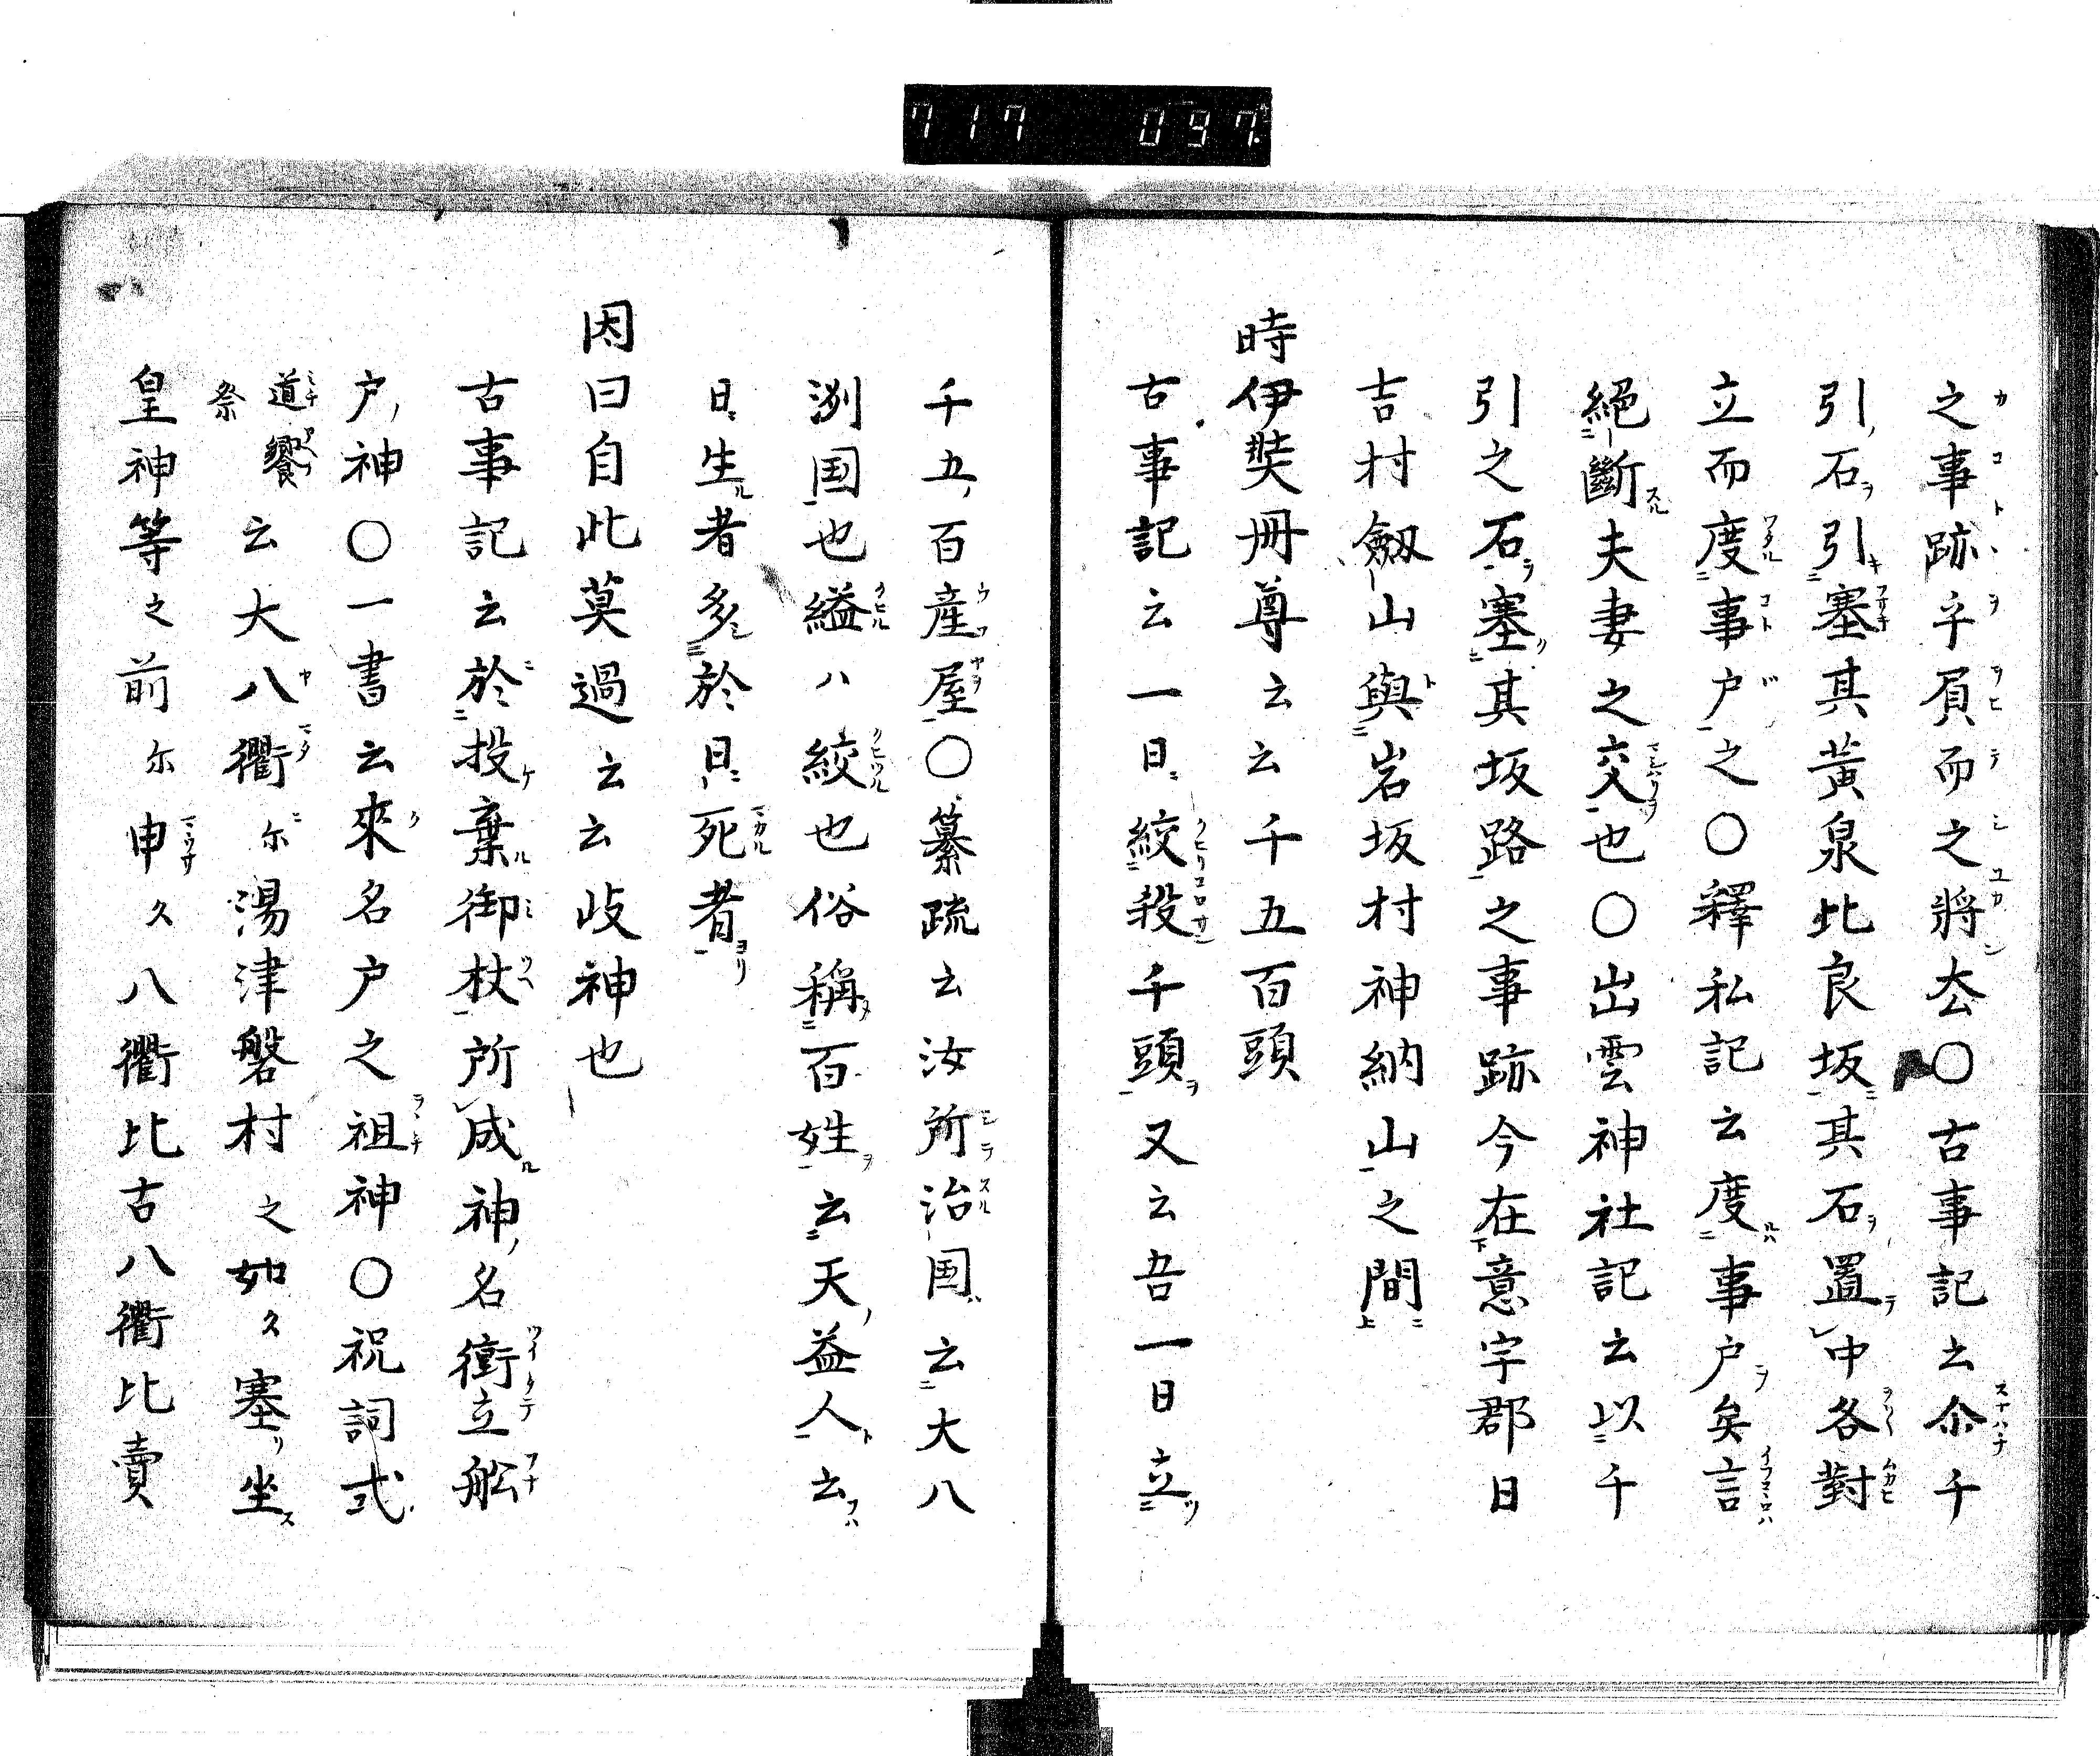 717 097
之事跡乎負而之將厺〇古事記云尒千
引石引塞其黄泉比良坂其石置中各對
立而度事戸之〇釋私記云度事戸矣言
絕斷夫妻之交也〇出雲神社記云以千
引之石塞其坂路之事跡今在意宇郡日
吉村劔山與岩坂村神納山之間
時伊弉冊尊云云千五百頭
古事記云一日絞殺千頭又云吾一日立
千五百産屋〇纂疏云汝所治国云大八
洲国也縊ハ絞也俗稱百姓云天益人云
日生者多於日死者
因曰自此莫過云云岐神也
古事記云於投棄御杖所成神名衝立舩
戸神〇一書云來名戸之祖神〇祝詞式
道饗祭云大八衢尓湯津磐村之如久塞坐
皇神等之前尓申久八衢比古八衢比賣